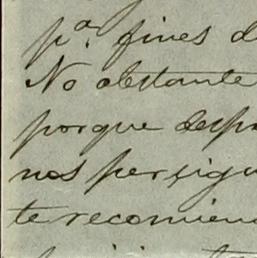 pª. fines d
No obstante
porque desp
nos persigu
te recomien